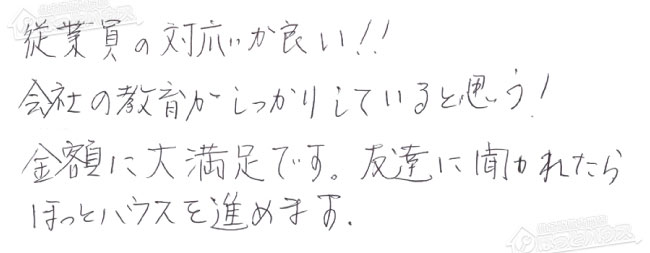 従業員の対応が良い!!
会社の教育がしっかりしていると思う!
金額に大満足です。友達に聞かれたら
ほっとハウスを進めます.